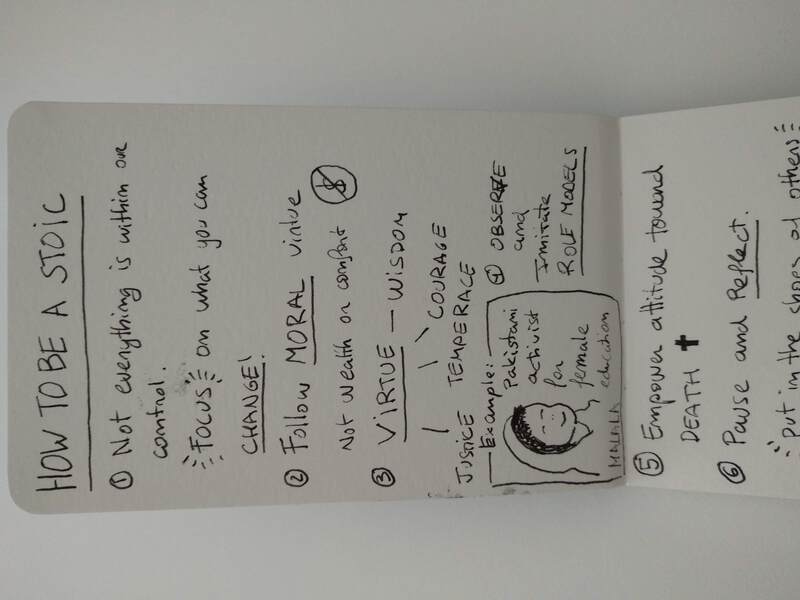 HOW TO BE A STOIC
① Not everything is within our
control.
FOCUS on what you can
CHANGE!
② Follow MORAL virtue
Not wealth or comfort $
③ VIRTUE — WISDOM
COURAGE
TEMPERACE
JUSTICE
Example:
Pakistani
activist
for
female
education
MALALA
④ OBSERVE
and
Imitate
ROLE MODELS
⑤ Empower attitude toward
DEATH ✝
⑥ Pause and Reflect.
put in the shoes of others